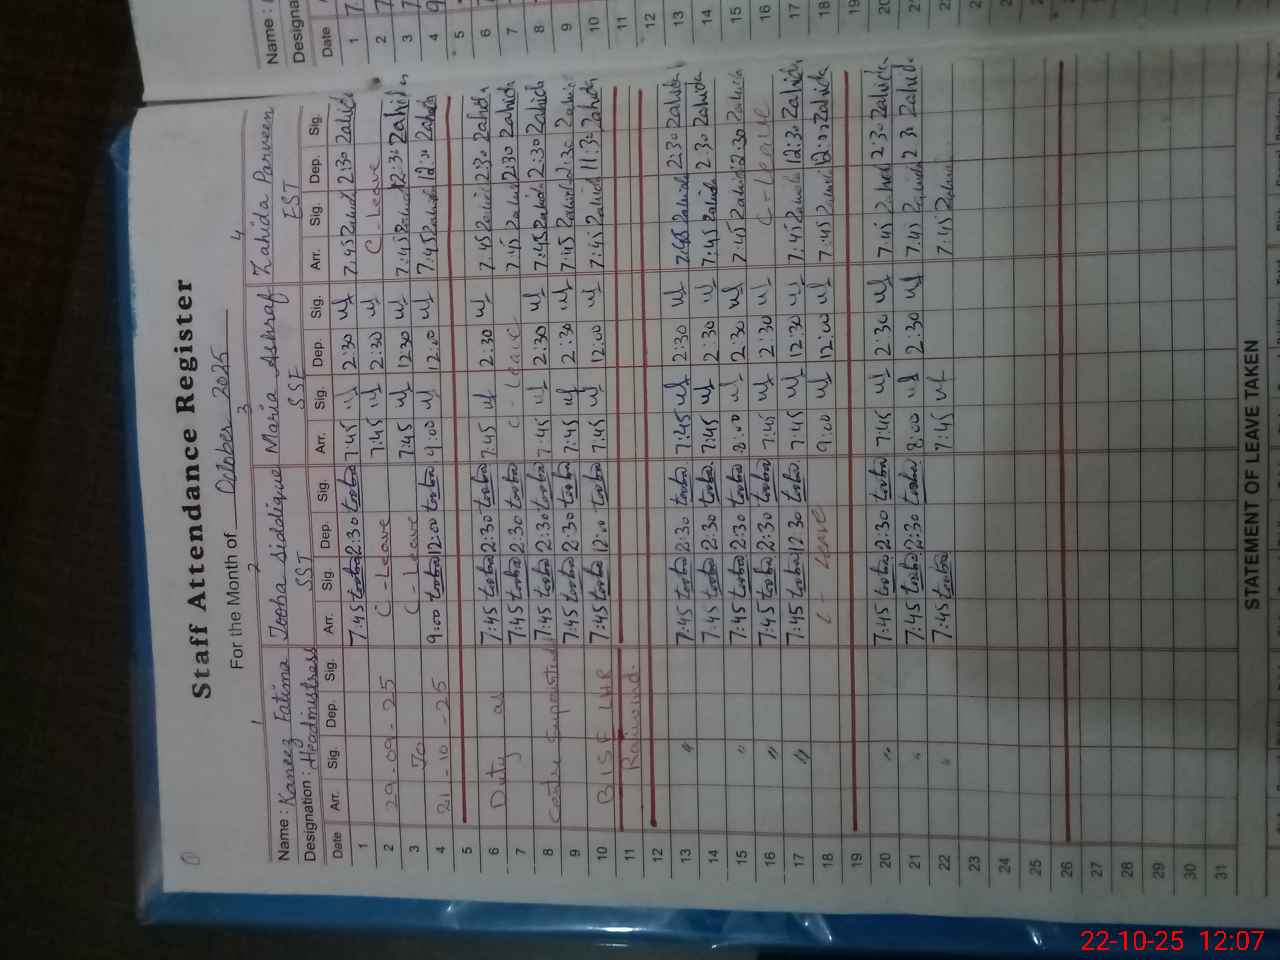 Staff Attendance Register
For the Month of October 2025
1 2 3 4
Name : Kaneez Fatima Tooba Siddique Maria Ashraf Zahida Parveen
Designation : Headmistress SST SSE EST
Date Arr. Sig. Dep. Sig. Arr. Sig. Dep. Sig. Arr. Sig. Dep. Sig. Arr. Sig. Dep. Sig.
1 7:45 tooba 2:30 tooba 7:45 2:30 7:45 Zahida 2:30 Zahida
2 29-09-25 C-Leave 7:45 2:30 C-Leave
3 To C-Leave 7:45 12:30 7:45 Zahida 12:30 Zahida
4 21-10-25 9:00 tooba 12:00 tooba 9:00 12:00 7:45 Zahida 12:30 Zahida
5
6 Duty as 7:45 tooba 2:30 tooba 7:45 2:30 7:45 Zahida 2:30 Zahida
7 7:45 tooba 2:30 tooba C-Leave 7:45 Zahida 2:30 Zahida
8 Centre 7:45 tooba 2:30 tooba 7:45 2:30 7:45 Zahida 2:30 Zahida
9 7:45 tooba 2:30 tooba 7:45 2:30 7:45 Zahida 2:30 Zahida
10 BISE LHR 7:45 tooba 12:00 tooba 7:45 12:00 7:45 Zahida 11:30 Zahida
11 Raiwind.
12
13 " 7:45 tooba 2:30 tooba 7:45 2:30 7:45 Zahida 2:30 Zahida
14 7:45 tooba 2:30 tooba 7:45 2:30 7:45 Zahida 2:30 Zahida
15 " 7:45 tooba 2:30 tooba 8:00 2:30 7:45 Zahida 2:30 Zahida
16 " 7:45 tooba 2:30 tooba 7:45 2:30 C-Leave
17 " 7:45 tooba 12:30 tooba 7:45 12:30 7:45 Zahida 12:30 Zahida
18 C-Leave 9:00 12:00 7:45 Zahida 12:00 Zahida
19
20 " 7:45 tooba 2:30 tooba 7:45 2:30 7:45 Zahida 2:30 Zahida
21 " 7:45 tooba 2:30 tooba 8:00 2:30 7:45 Zahida 2:30 Zahida
22 " 7:45 tooba 7:45 7:45 Zahida
23
24
25
26
27
28
29
30
31
STATEMENT OF LEAVE TAKEN
Name :
Designa
Date
1 7
2 7
3 7
4 9
5
6
7
8
9
10
11
12
13
14
15
16
17
18
19
20
21
22
22-10-25 12:07